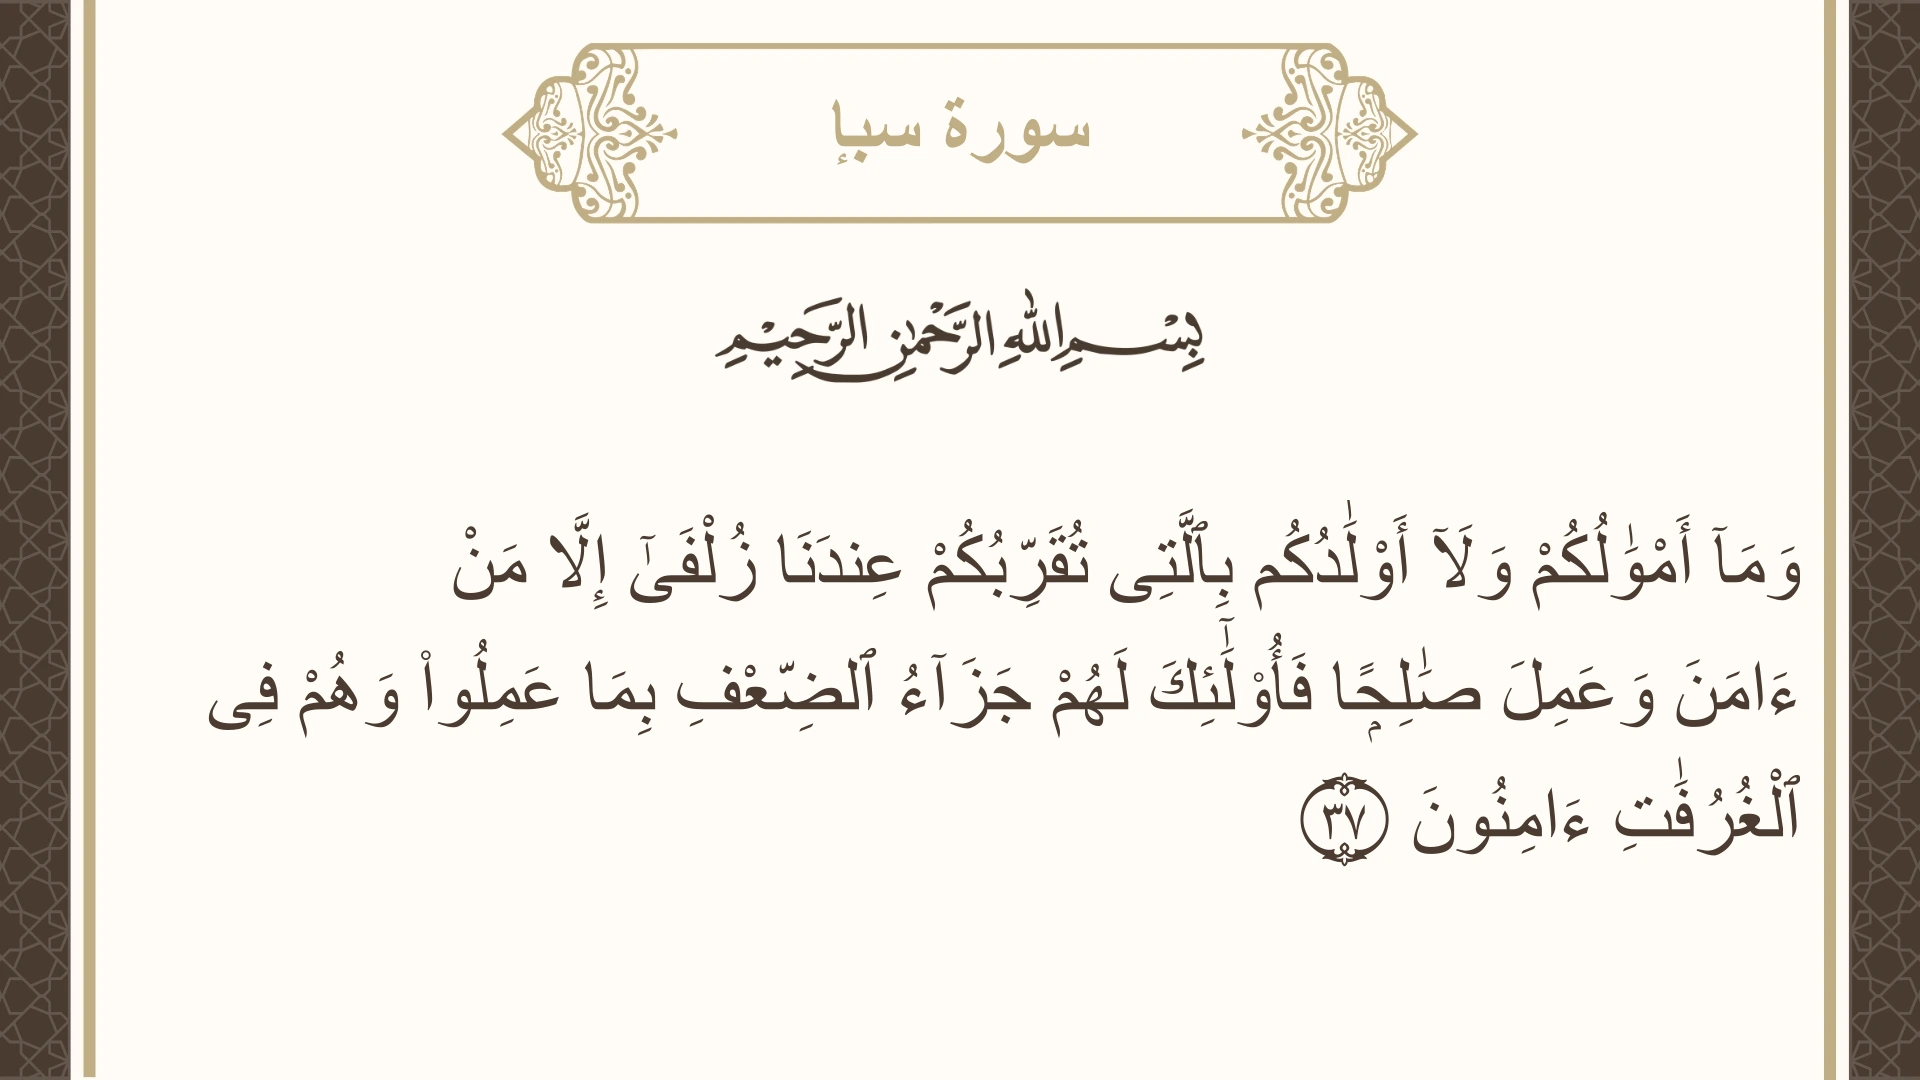 سورة سبإ
بِسْمِ اللهِ الرَّحْمٰنِ الرَّحِيْمِ
وَمَآ أَمْوَٰلُكُمْ وَلَآ أَوْلَٰدُكُم بِٱلَّتِى تُقَرِّبُكُمْ عِندَنَا زُلْفَىٰٓ إِلَّا مَنْ
ءَامَنَ وَعَمِلَ صَٰلِحًۭا فَأُو۟لَٰٓئِكَ لَهُمْ جَزَآءُ ٱلضِّعْفِ بِمَا عَمِلُوا۟ وَهُمْ فِى
ٱلْغُرُفَٰتِ ءَامِنُونَ ٣٧